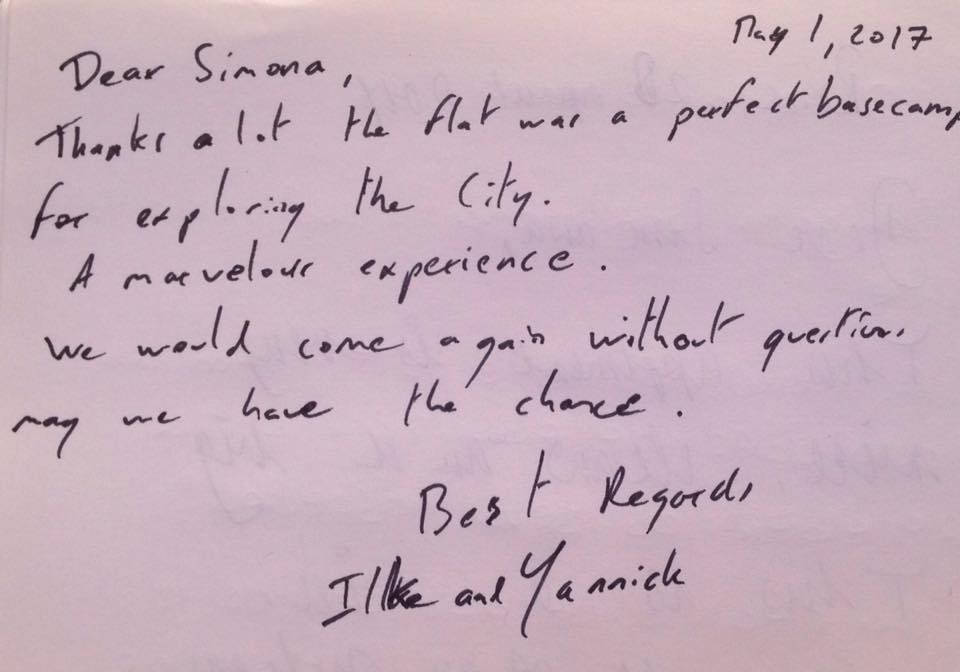 May 1, 2017
Dear Simona,
Thanks a lot the flat was a perfect basecamp
for exploring the City.
A marvelous experience.
We would come again without question.
may we have the chance.
Best Regards
Ilke and Yannick